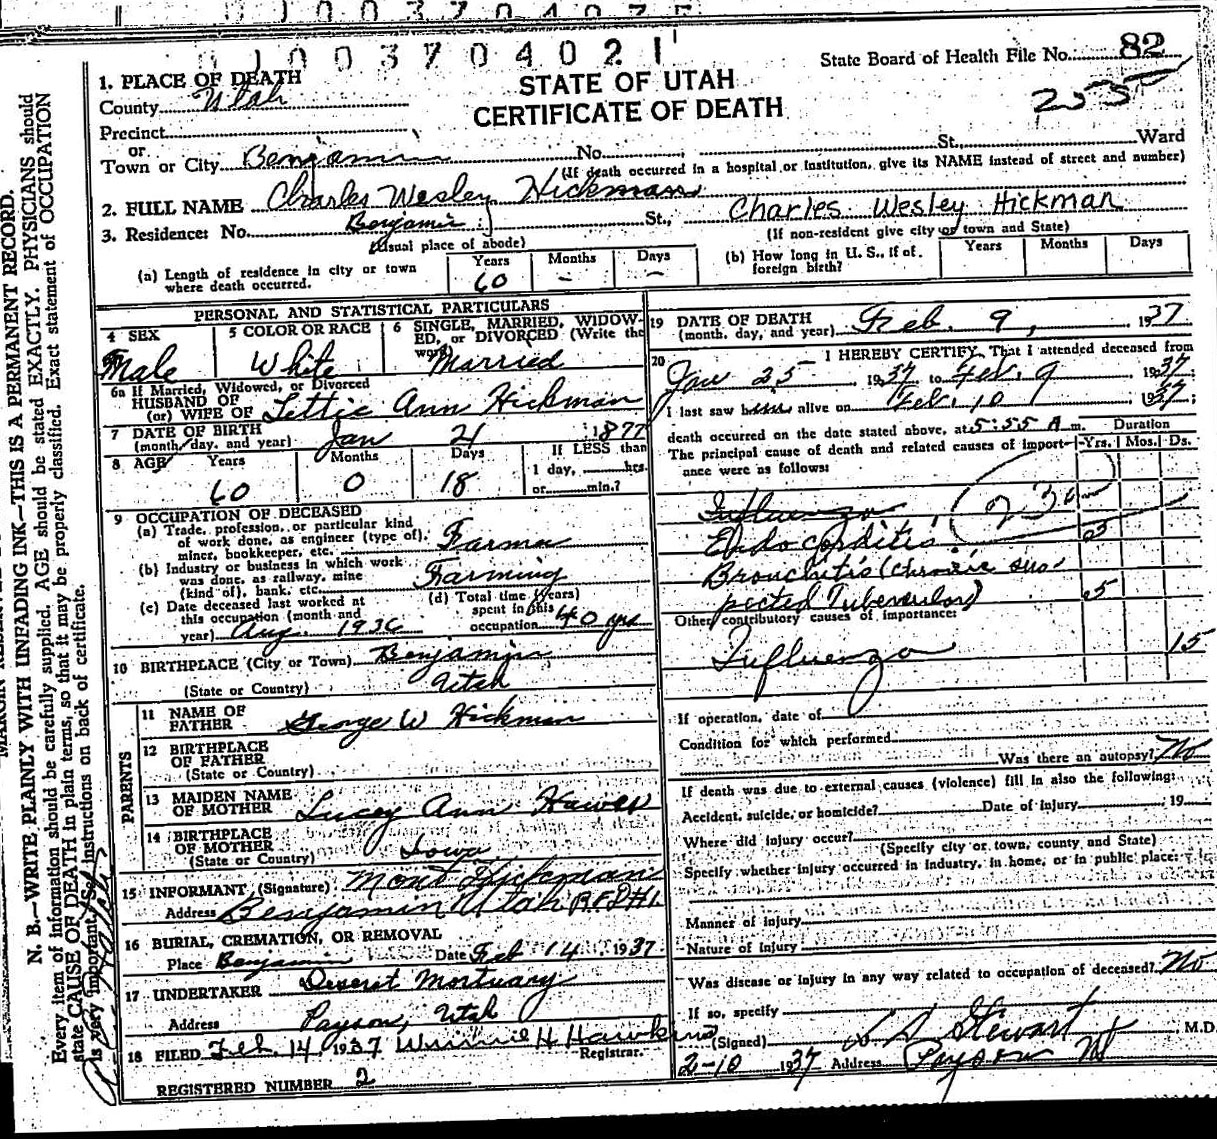 1003704021
State Board of Health File No. 82
2555
STATE OF UTAH
CERTIFICATE OF DEATH
1. PLACE OF DEATH
County Utah
Precinct
or
Town or City Benjamin No. St. Ward
(If death occurred in a hospital or institution, give its NAME instead of street and number)
2. FULL NAME Charles Wesley Hickman
Charles Wesley Hickman
3. Residence: No. Benjamin St.,
(Usual place of abode)
(If non-resident give city or town and State)
(a) Length of residence in city or town where death occurred. Years 60 Months - Days -
(b) How long in U. S., if of foreign birth? Years Months Days
PERSONAL AND STATISTICAL PARTICULARS
4 SEX Male
5 COLOR OR RACE White
6 SINGLE, MARRIED, WIDOWED, or DIVORCED (Write the word) Married
6a If Married, Widowed, or Divorced
HUSBAND OF
(or) WIFE OF Lettie Ann Hickman
7 DATE OF BIRTH
(month, day, and year) Jan 21 1877
8 AGE Years 60 Months 0 Days 18
If LESS than
1 day, hrs.
or min.?
9 OCCUPATION OF DECEASED
(a) Trade, profession, or particular kind
of work done, as engineer (type of),
miner, bookkeeper, etc. Farmer
(b) Industry or business in which work
was done, as railway, mine
(kind of), bank, etc. Farming
(c) Date deceased last worked at
this occupation (month and
year) Aug. 1936
(d) Total time (years)
spent in this
occupation 40 yrs
10 BIRTHPLACE (City or Town) Benjamin
(State or Country) Utah
PARENTS
11 NAME OF
FATHER George W Hickman
12 BIRTHPLACE
OF FATHER
(State or Country)
13 MAIDEN NAME
OF MOTHER Lucey Ann Hawes
14 BIRTHPLACE
OF MOTHER
(State or Country) Iowa
15 INFORMANT (Signature) Mont Hickman
Address Benjamin Utah R.F.D #1
16 BURIAL, CREMATION, OR REMOVAL
Place Benjamin Date Feb 14 1937
17 UNDERTAKER Deseret Mortuary
Address Payson, Utah
18 FILED Feb. 14, 1937 Winnie H Hawkins
Registrar.
REGISTERED NUMBER 2
19 DATE OF DEATH
(month, day, and year) Feb. 9, 1937
20 I HEREBY CERTIFY, That I attended deceased from
Jan 25, 1937 to Feb. 9 1937;
I last saw him alive on Feb. 10 1937;
death occurred on the date stated above, at 5:55 A m.
The principal cause of death and related causes of importance were as follows:
Duration
Yrs. Mos. Ds.
Influenza
Endocarditis 3
Bronchitis (chronic sus
pected Tuberculor) 5
Other contributory causes of importance:
Influenza 15
If operation, date of
Condition for which performed
Was there an autopsy? No
If death was due to external causes (violence) fill in also the following:
Accident, suicide, or homicide? Date of injury , 19
Where did injury occur?
(Specify city or town, county and State)
Specify whether injury occurred in industry, in home, or in public place:
Manner of injury
Nature of injury
Was disease or injury in any way related to occupation of deceased? No
If so, specify
(Signed) L D Stewart M.D.
2-10 1937 Address Payson Ut
N. B.—WRITE PLAINLY WITH UNFADING INK—THIS IS A PERMANENT RECORD.
Every item of information should be carefully supplied. AGE should be stated EXACTLY. PHYSICIANS should
state CAUSE OF DEATH in plain terms, so that it may be properly classified. Exact statement of OCCUPATION
is very important. See instructions on back of certificate.